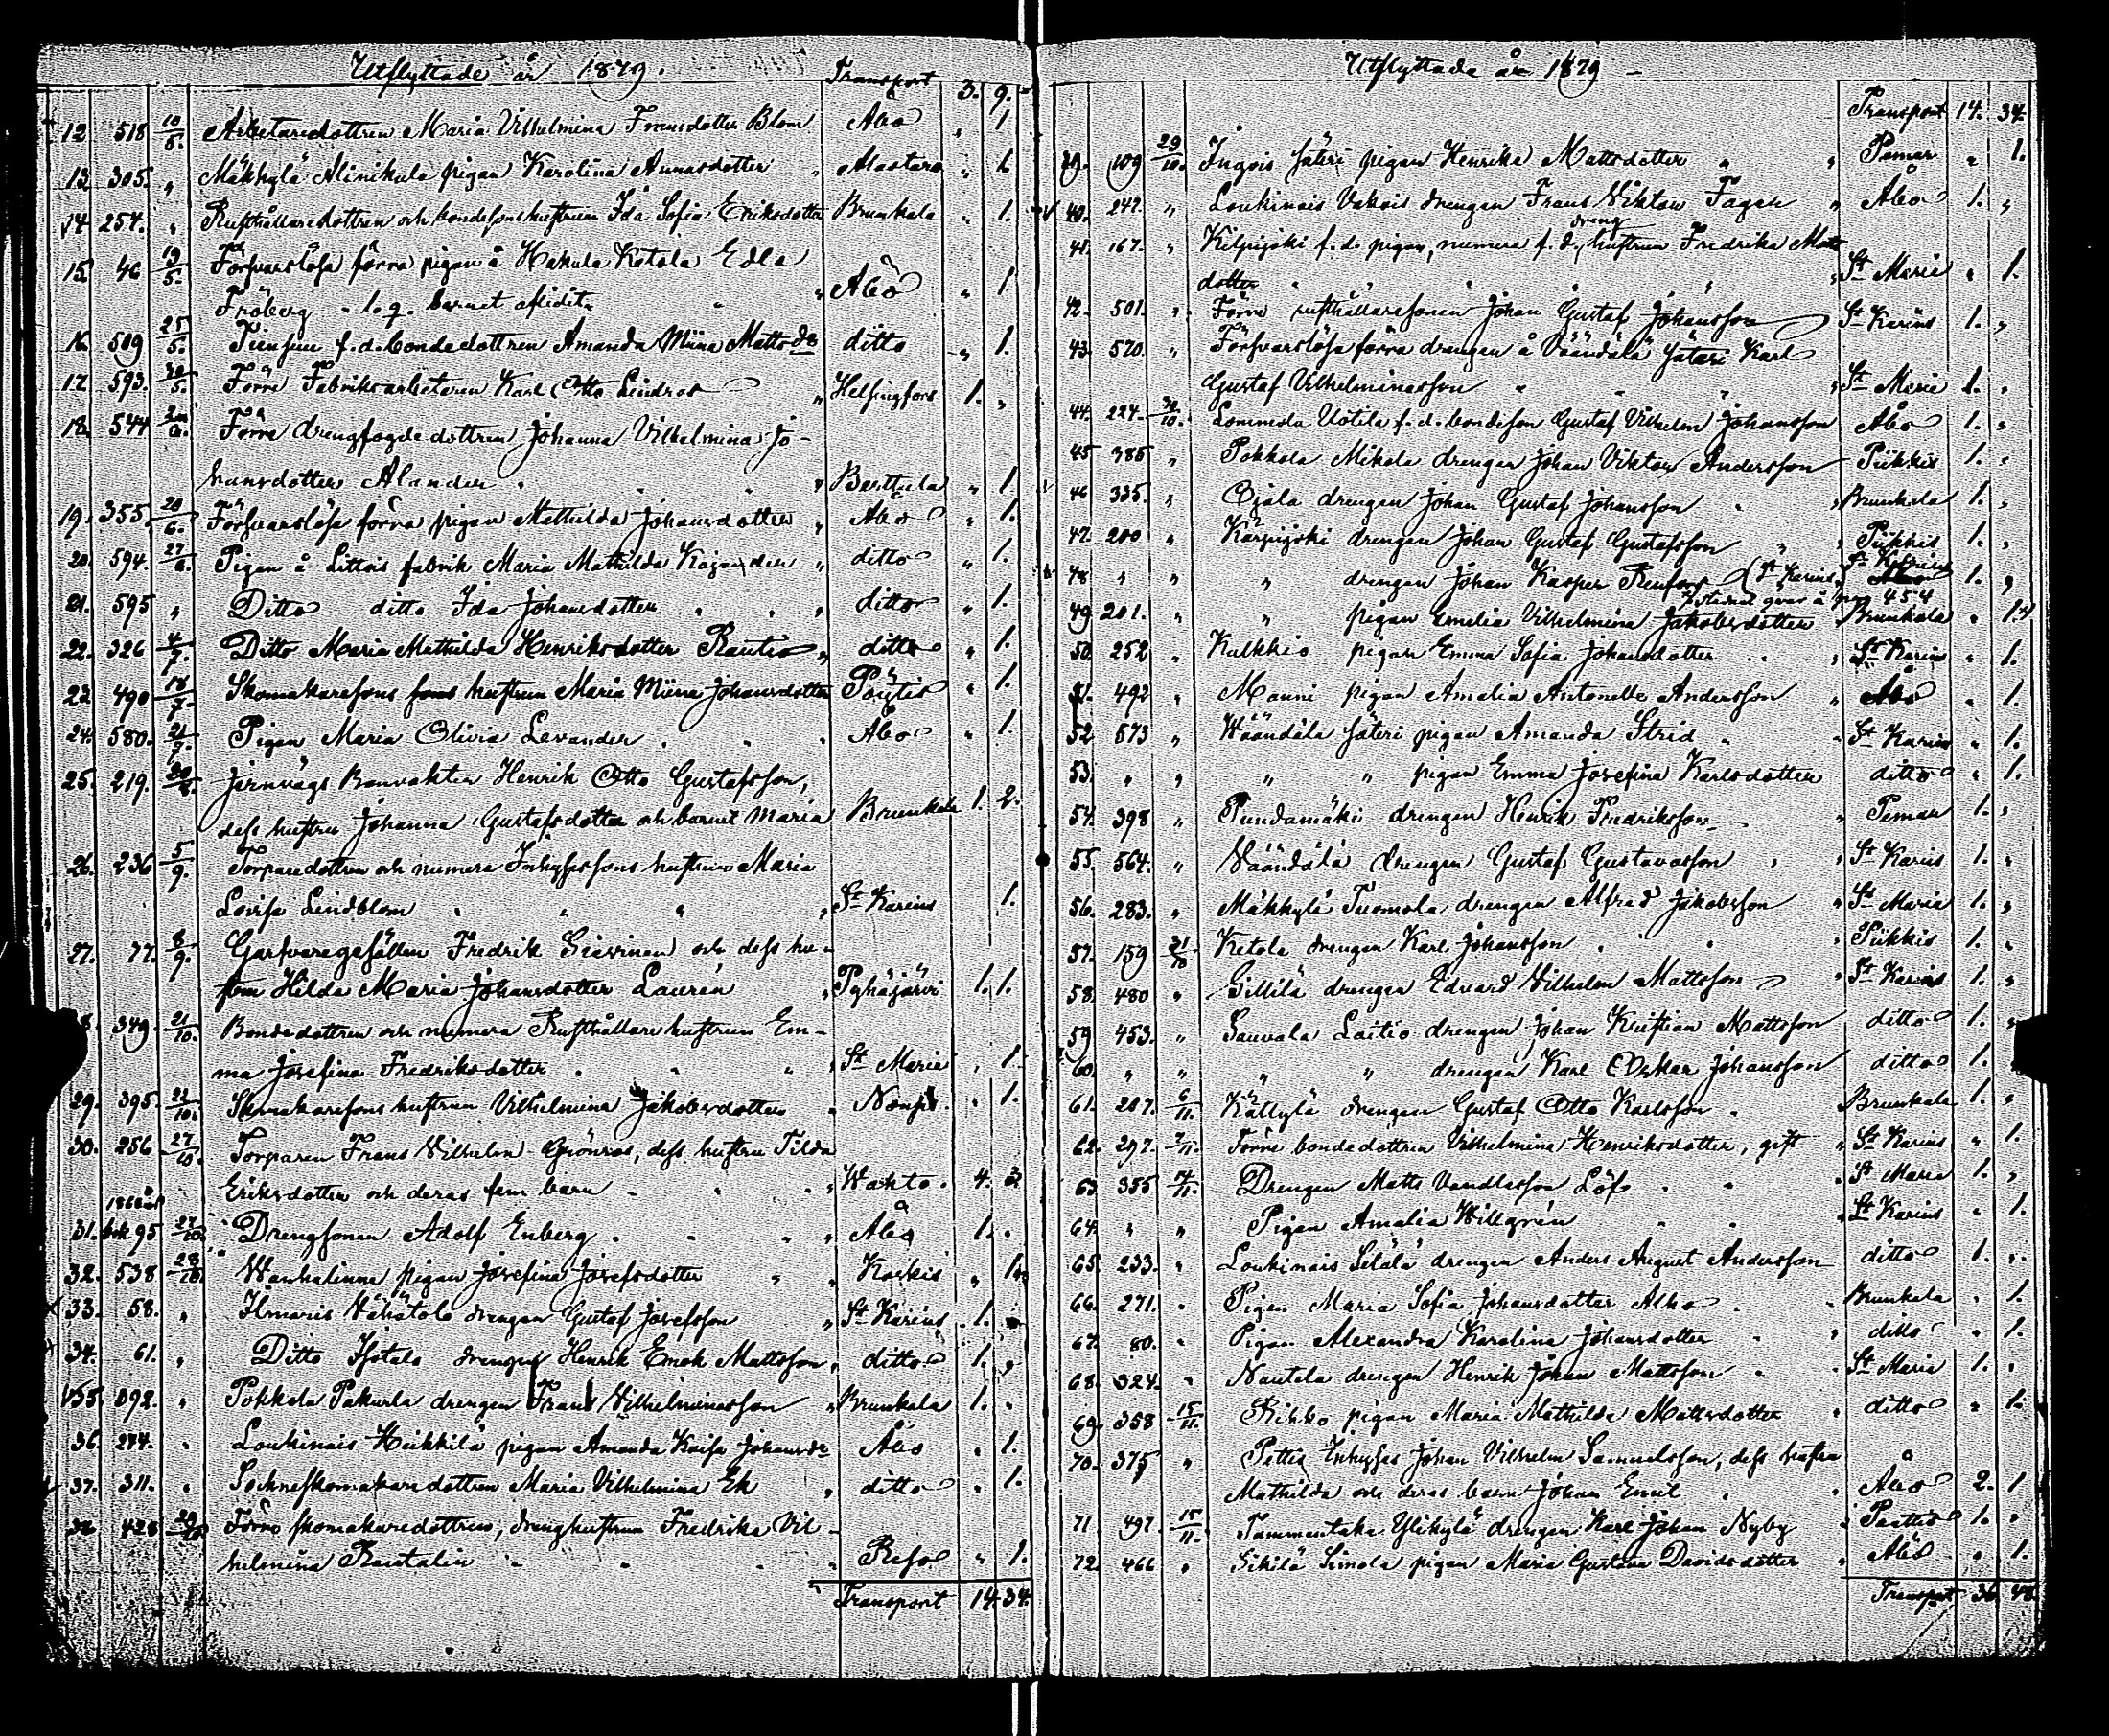 Utflyttade år 1879.
Transport 3. 9.
12 518 10/5. Arbetaredottren Maria Vilhelmina Fransdotter Blom Åbo „ 1
13 305. „ Mäkkylä Alinikula pigan Karolina Annasdotter „ Alastaro „ 1
14 254. „ Rusthållaredottren och bondesonshustrun Ida Sofia Eriksdotter Brunkala „ 1.
15 46 19/5. Försvarslösa förra pigan å Hakula Ketola Edla
Fröberg - l. q. barnet aflidit „ „ Åbo „ 1
16 509 25/5. f. d. bondedottren Amanda Miina Mattsdr ditto „ 1.
17 593. 5. Förre Fabriksarbetaren Karl Otto Lindros „ Helsingfors 1. „
18. 544 Förre drengfogdedottren Johanna Vilhelmina Jo-
hansdotter Alander „ „ „ Berttula „ 1.
19. 355. 20/6. Försvarslösa förra pigan Mathilda Johansdotter „ Åbo „ 1.
20. 594. 27/6. Pigan å Littois fabrik Maria Mathilda Kajander „ ditto „ 1.
21. 595 „ Ditto ditto Ida Johansdotter „ „ ditto „ 1.
22. 326 4/7. Ditto Maria Mathilda Henriksdotter Rautio „ ditto „ 1.
23 490 18/7. Skomakaresons hustrun Maria Miina Johansdotter Pöutis „ 1.
24. 580. 21/7. Pigan Maria Olivia Levander „ „ Åbo „ 1.
25. 219. Jernvägs Banvakten Henrik Otto Gustafsson,
dess hustru Johanna Gustafsdotter och barnet Maria Brunkala 1. 2.
26. 236 5/9. Torparedottren och numera Inhysessons hustrun Maria
Lovisa Lindblom „ „ „ St Karins 1.
27. 77. 8/9. Garfvaregesällen Fredrik Siivinen och dess hu-
stru Hilda Maria Johansdotter Laurén „ Pyhäjärvi 1. 1.
349. 21/10. Bondedottren och numera Rusthållare hustrun Em-
ma Josefina Fredriksdotter „ „ „ St Maria „ 1.
29. 395. 22/10. Skomakaresons hustrun Vilhelmina Jakobsdotter „ „ 1.
30. 256 27/10. Torparen Frans Vilhelm Grönros, dess hustru Tilda
Eriksdotter och deras fem barn „ „ Wahto. 4. 3
31. bok 95 27/10. Drengsonen Adolf Enberg „ „ „ Åbo 1. „
32. 538 28/10. Wanhalinna pigan Josefina Josefsdotter „ „ Koskis „ 1.
33. 58. „ Ilmaris Vähätalo drengen Gustaf Josefsson „ St Karins 1. „
34. 61. „ Ditto Isotalo drengen Henrik Enok Mattsson „ ditto 1. „
35. 092. „ Pokkola Pakurla drengen Frans Vilhelminasson „ Brunkala 1. „
36. 274. „ Loukinais Heikkilä pigan Amanda Kaisa Johansdr Åbo „ 1.
37. 311. „ Sockneskomakaredottren Maria Vilhelmina Ek „ ditto „ 1.
38 428 29/10 Förre skomakaredottren, drenghustrun Fredrika Vil-
helmina Rautalin „ „ „ Reso „ 1.
Transport 14 34.
Utflyttade år 1879 -
Transport 14. 34.
39. 109 29/10. Ingois säteri pigan Henrika Mattsdotter „ „ Pemar „ 1.
40. 247. „ Loukinais Vakois drengen Frans Viktor Fagen „ Åbo 1. „
41. 167. „ Kilpijoki f. d. pigan, numera f. d. dreng hustrun Fredrika Matts
dotter „ „ „ „ St Marie „ 1.
42. 501. „ Förre rusthållaresonen Johan Gustaf Johansson St Karins 1. „
43. 570. „ Försvarslösa förra drengen å Väändälä säteri Karl
Gustaf Vilhelminasson „ „ „ St Marie 1. „
44. 224. 30/10. Lommola Uotila f. d. bondeson Gustaf Vilhelm Johansson Åbo 1. „
45 385 „ Pokkola Mikola drengen Johan Viktor Andersson Piikkis 1. „
46 335. „ Ojala drengen Johan Gustaf Johansson „ Brunkala 1. „
47. 200 „ Kärpijoki drengen Johan Gustaf Gustafsson „ Piikkis 1. „
48 „ „ „ drengen Johan Kasper Renfors (St Karins, St Katrins 1. „
qvar å pag 454
49 201. „ „ pigan Emelia Vilhelmina Jakobsdotter Brunkala „ 1.
50. 252 „ Kulkkio pigan Emma Sofia Johansdotter „ „ St Karins „ 1.
51. 492 „ Mauni pigan Amalia Antonette Andersson „ Åbo „ 1.
52 573 „ Wäändälä säteri pigan Amanda Strid „ „ St Karins „ 1.
53. „ „ „ „ pigan Emma Josefina Karlsdotter ditto „ 1.
54. 398 „ Pundamäki drengen Henrik Fredriksson „ Pemar 1. „
55. 564. „ Väändälä drengen Gustaf Gustavasson „ „ St Karins 1. „
56. 283. „ Mäkkylä Tuomola drengen Alfred Jakobsson „ St Maria 1. „
57. 159 31/10 Ketola drengen Karl Johansson „ „ „ Piikkis 1. „
58. 480 „ Sillilä drengen Edvard Vilhelm Mattsson „ St Karins 1. „
59 453. „ Sauvala Laitio drengen Johan Kristian Mattsson ditto 1. „
60. „ „ „ „ drengen Karl Oskar Johansson ditto 1.
61. 207. 6/11. Källylä drengen Gustaf Otto Karlsson „ Brunkala 1. „
62. 297. 7/11. Förre bondedottren Vilhelmina Henriksdotter, gift „ St Karins „ 1.
63 355 14/11. Drengen Matts Vandlesson Löf „ „ St Maria 1. „
64. „ „ Pigan Amalia Willgrén „ „ St Karins „ 1.
65. 233. „ Loukinais Seläla drengen Anders August Andersson ditto 1. „
66. 271. „ Pigan Maria Sofia Johansdotter Alho „ „ Brunkala „ 1.
67. 80. „ Pigan Alexandra Karolina Johansdotter „ „ ditto „ 1.
68. 324. „ Nautela drengen Henrik Johan Mattsson „ „ St Maria 1. „
69. 358 15/11. Rihko pigan Maria Mathilda Mattsdotter „ ditto „ 1.
70. 375 „ Pettis Inhyses Johan Vilhelm Samuelsson, dess hustru
Mathilda och deras barn Johan Emil „ „ Åbo 2. 1
71. 497. 15/11. Tammentaka Ylikylä drengen Karl Johan Nyby „ Paattis 1. „
72. 466 „ Sikilä Simola pigan Maria Gustava Davidsdotter „ Åbo „ 1.
Transport 36 48.